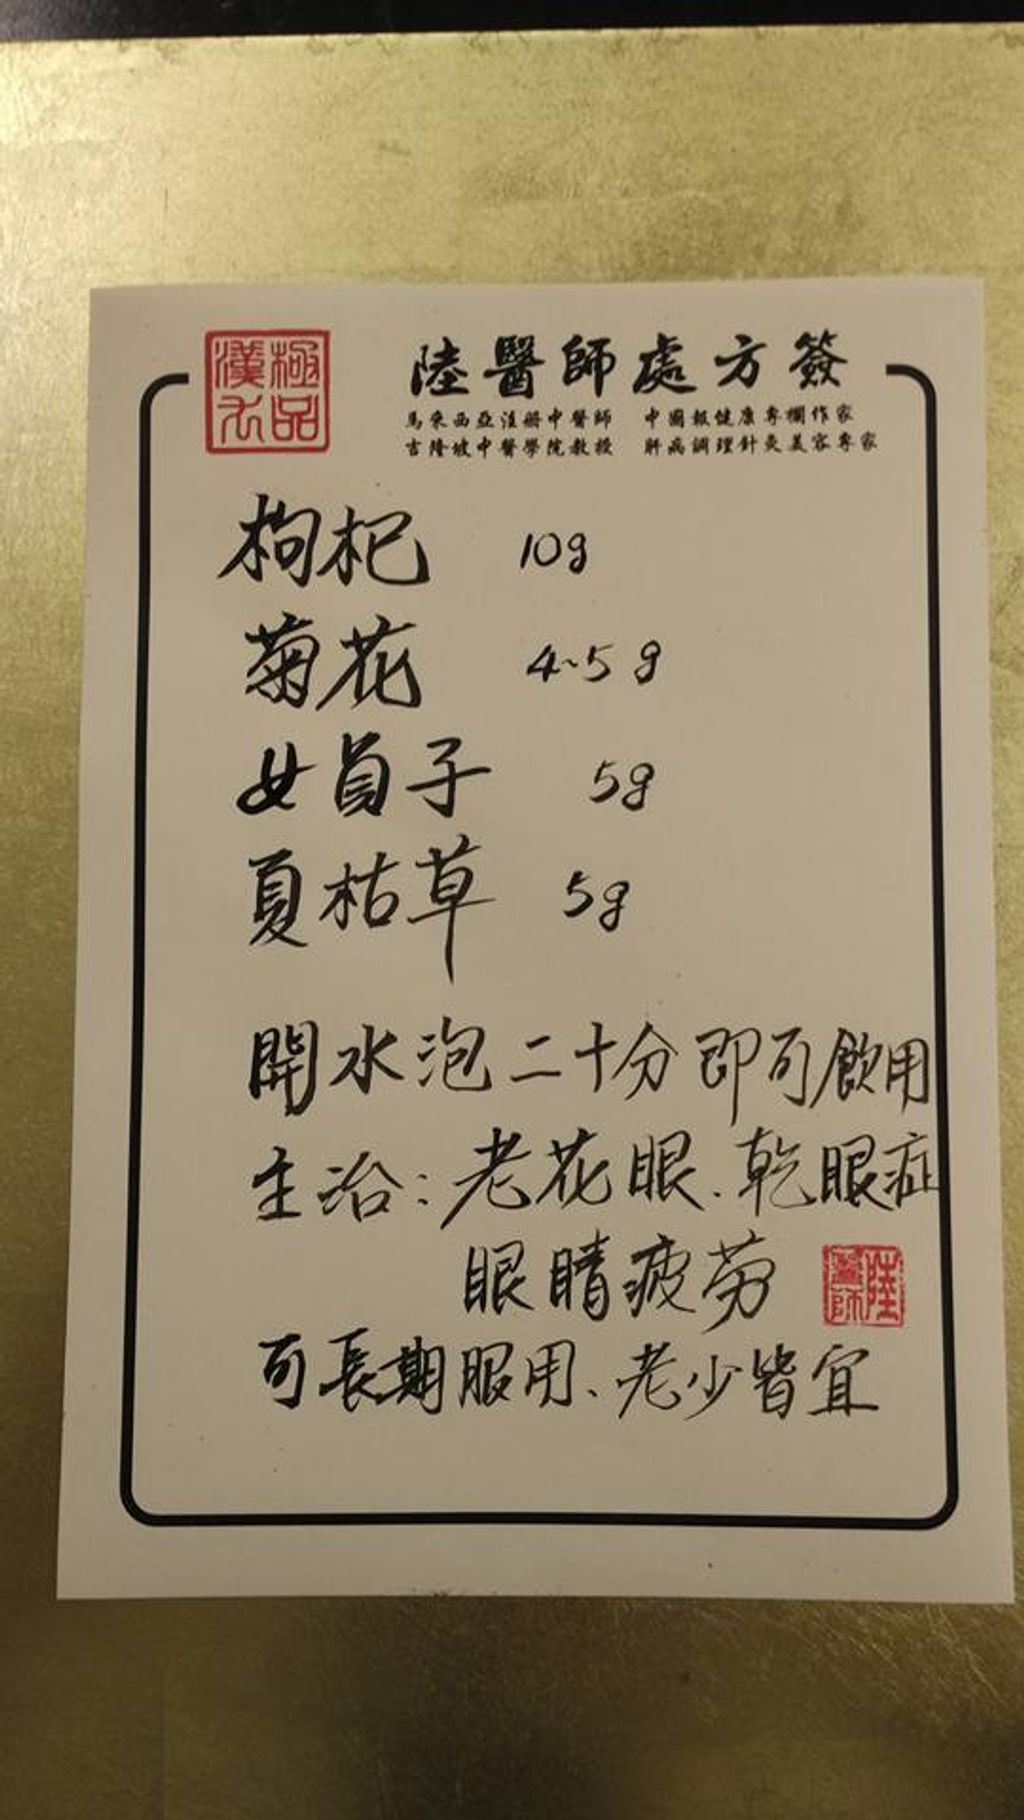 極品
漢方
陸醫師處方簽
馬來西亞注冊中醫師 中國報健康專欄作家
吉隆坡中醫學院教授 肝病調理針灸美容專家
枸杞 10g
菊花 4~5g
女貞子 5g
夏枯草 5g
開水泡二十分即可飲用
主治:老花眼、乾眼症
眼睛疲勞
陸醫師
可長期服用、老少皆宜